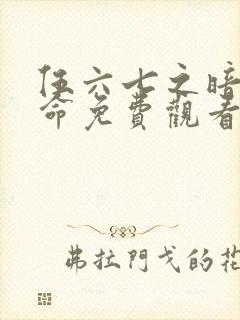 伍六七之暗
命免費觀看
弗拉門戈的花